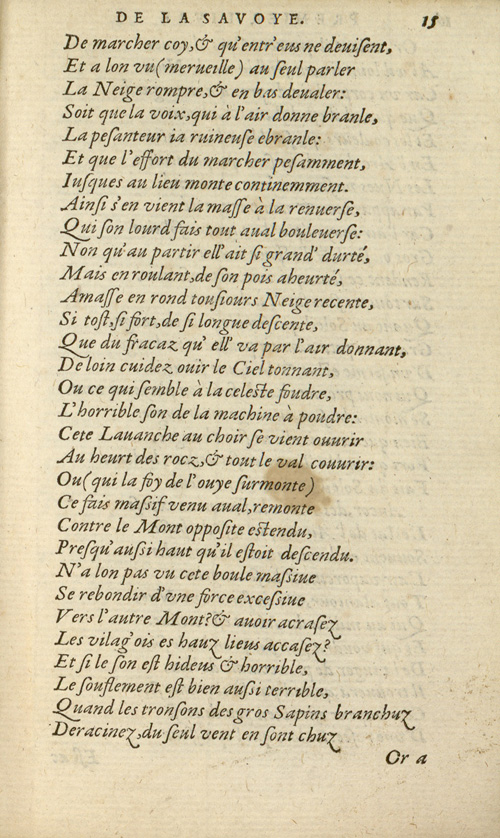 DE LA SAVOYE. 15
De marcher coy,& qu'entr'eus ne deuiſent,
Et a lon vu(merueille) au ſeul parler
La Neige rompre,& en bas deualer:
Soit que la voix,qui à l'air donne branle,
La peſanteur ia ruineuſe ebranle:
Et que l'effort du marcher peſamment,
Iuſques au lieu monte continemment.
Ainſi s'en vient la maſſe à la renuerſe,
Qui ſon lourd fais tout aual bouleuerſe:
Non qu'au partir ell'ait ſi grand' durté,
Mais en roulant,de ſon pois aheurté,
Amaſſe en rond touſiours Neige recente,
Si toſt,ſi fort,de ſi longue deſcente,
Que du fracaz qu' ell' va par l'air donnant,
De loin cuidez ouir le Ciel tonnant,
Ou ce qui ſemble à la celeſte foudre,
L'horrible ſon de la machine à poudre:
Cete Lauanche au choir ſe vient ouurir
Au heurt des rocz,& tout le val couurir:
Ou(qui la foy de l'ouye ſurmonte)
Ce fais maſſif venu aual,remonte
Contre le Mont oppoſite eſtendu,
Preſqu'auſſi haut qu'il eſtoit deſcendu.
N'a lon pas vu cete boule maſſiue
Se rebondir d'vne force exceſſiue
Vers l'autre Mont?& auoir acraſez
Les vilag'ois es hauz lieus accaſez?
Et ſi le ſon eſt hideus & horrible,
Le ſouflement eſt bien auſſi terrible,
Quand les tronſons des gros Sapins branchuz
Deracinez,du ſeul vent en ſont chuz
Or a